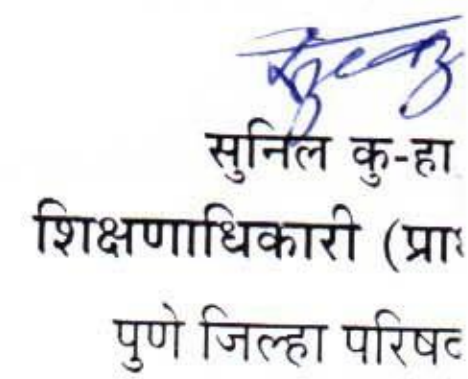 सुनिल कु-हा
शिक्षणाधिकारी (प्रा
पुणे जिल्हा परिष